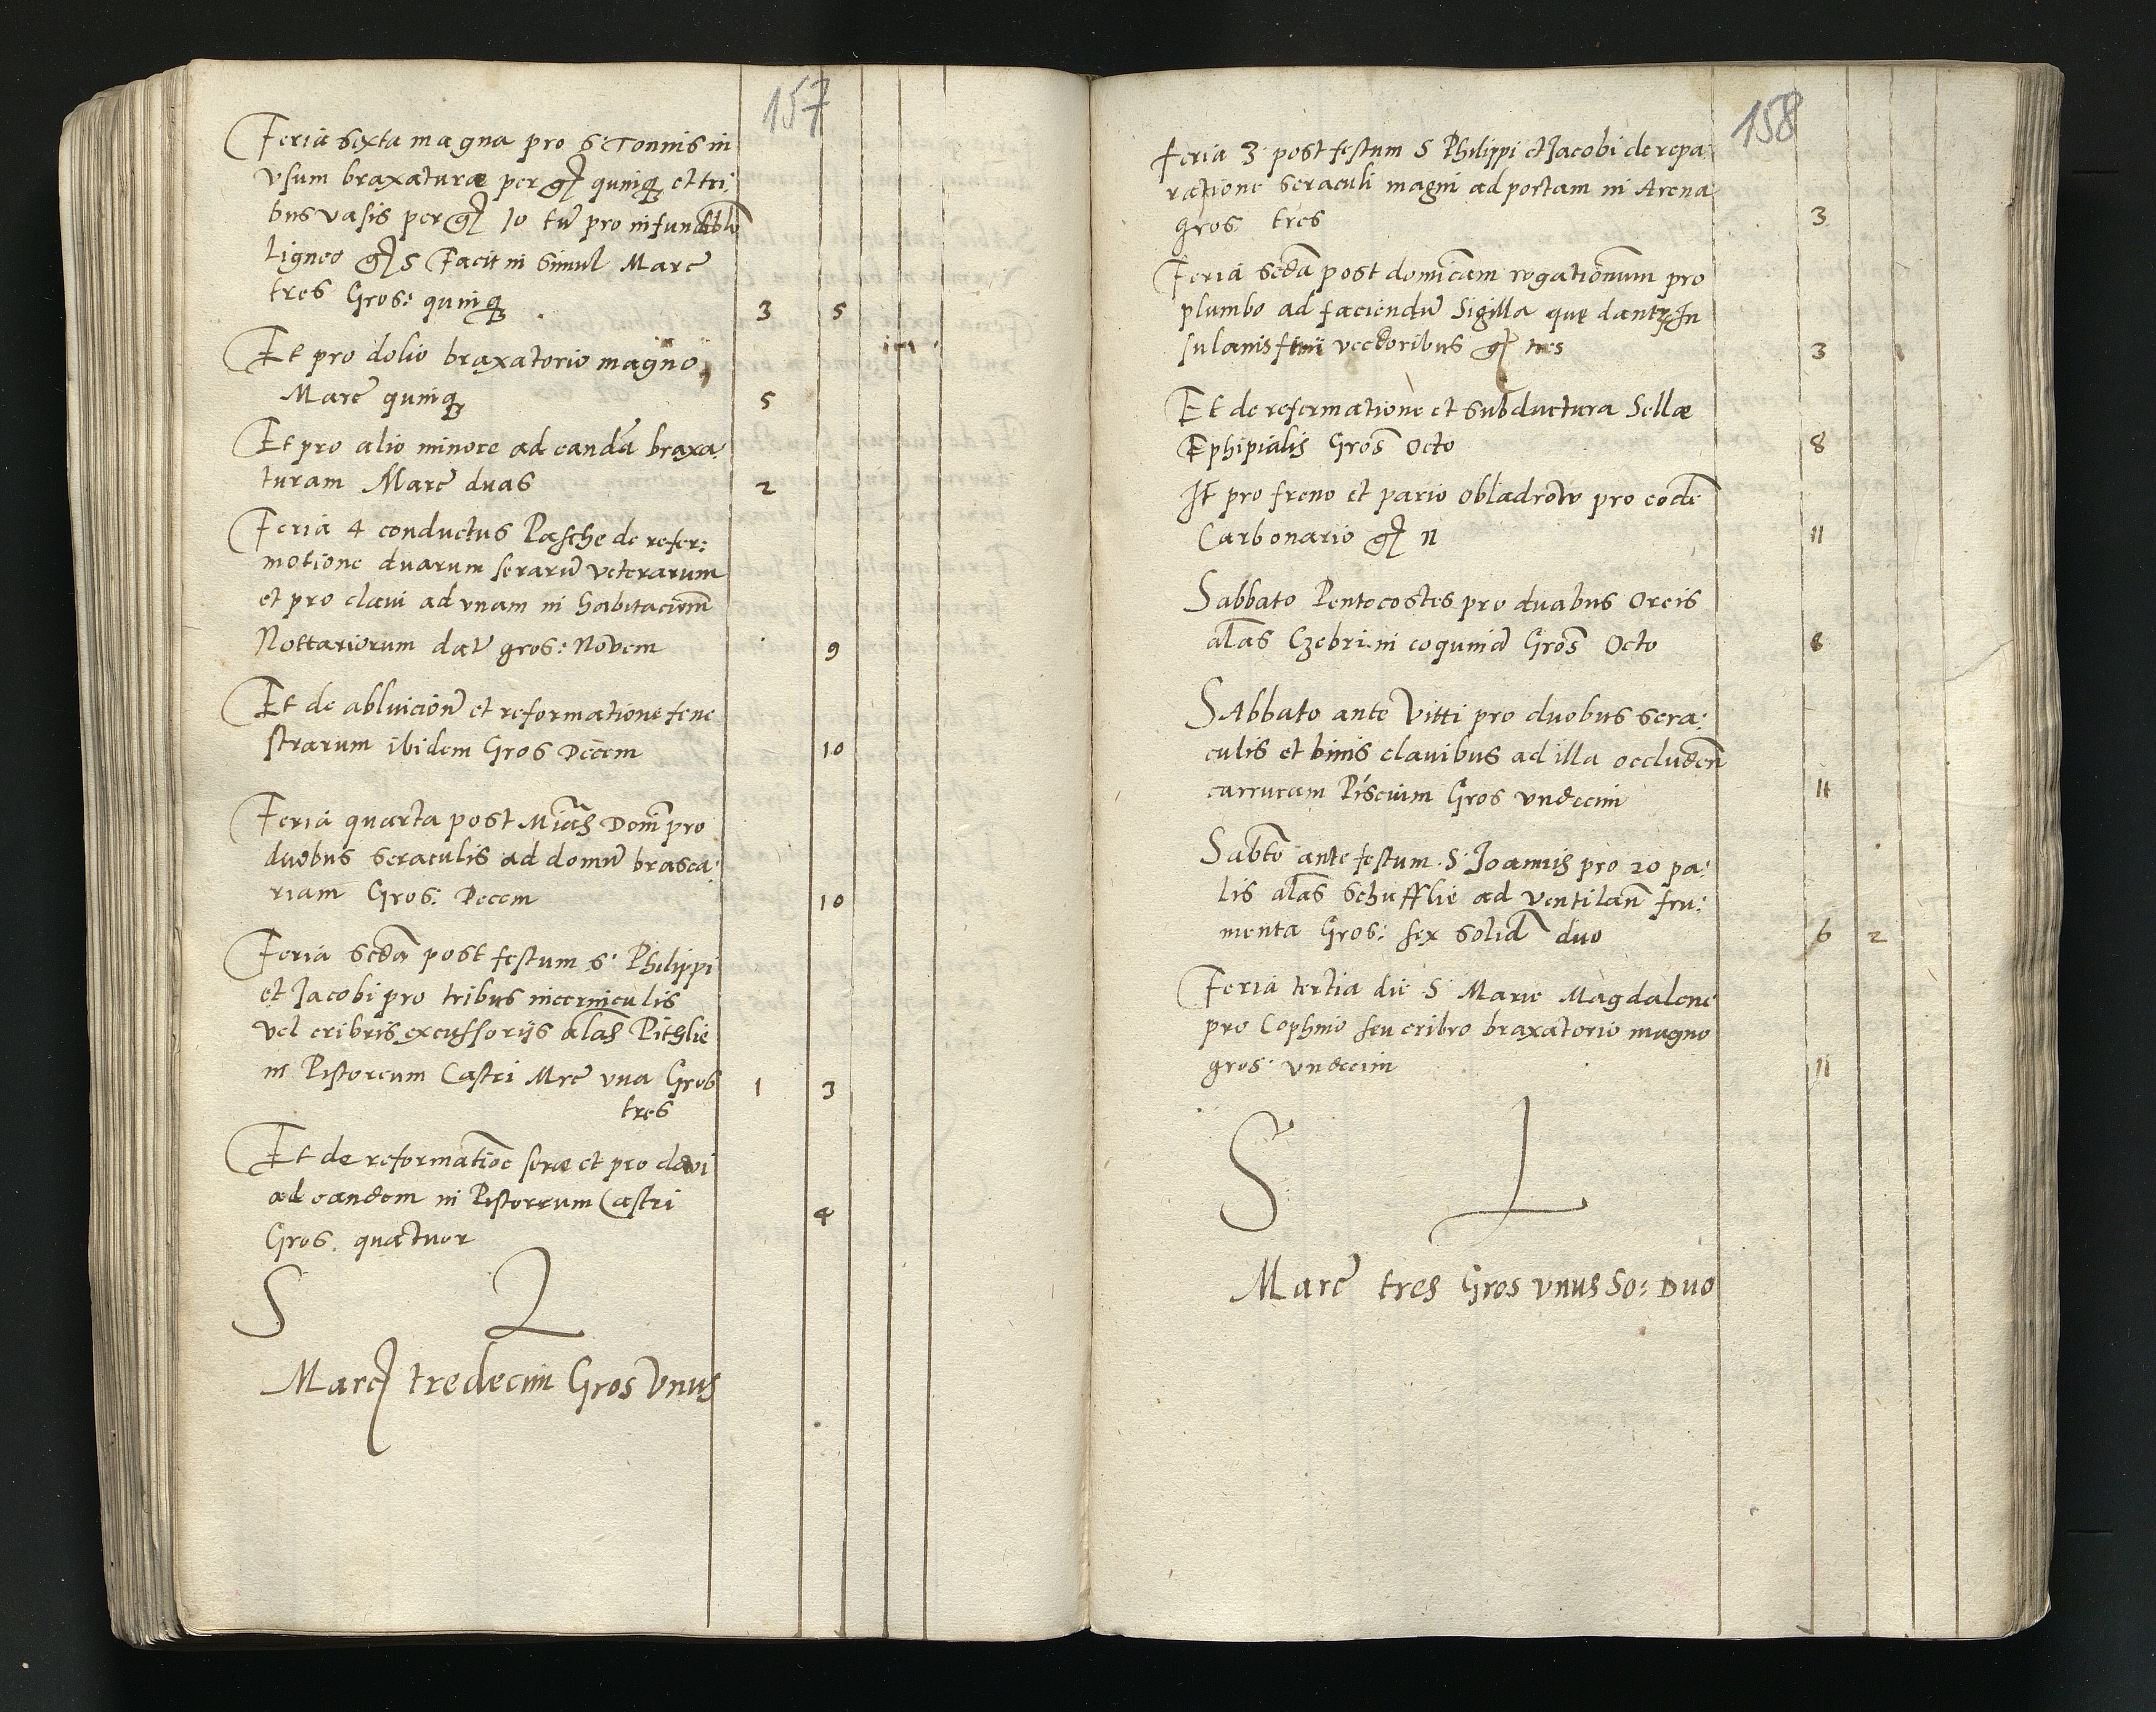 157
Feria sexta magna pro 6 Tonnis in
vsum braxaturæ per gͬ quinqȝ et tri:
bus vasis per gͬ 10 tuͫ pro infundiblo
Ligneo gͬ 5 Facit in simul Marc̃
tres Gros: quinqȝ 3 5
Et pro dolio braxatorio magno
Marc̃ quinqȝ 5
Et pro alio minore ad eandã braxa:
turam Marc̃ duas 2
Feria 4 conductus Pasche de refor:
motione duarum serarũ veterarum
et pro claui ad vnam in habitacium̃
Nottariorum dat̃ gros: Novem 9
Et de abluicionẽ et reformatione fene
strarum ibidem Gros Decem 10
Feria quarta post Mĩas Dom̃ pro
duobus seraculis ad domũ brasea:
riam Gros: Decem 10
Feria secd̃a post festum S: Philippi
et Jacobi pro tribus incerniculis
vel cribris excussorijs al̃as Pithlie
in Pistoreum Castri Mrc̃ vna Gros 1 3
tres
Et de reformatioẽ seræ et pro clavi
ad eandem in Pistorrum Castri
Gros. quattuor 4
S L
Marc̃ tredecim Gros Vnus
158
feria 3 post festum S Philippi et Jacobi de repa:
ratione seraculi magni ad portam in Arena
gros tres 3
Feria secd̃a post domic̃am rogationum pro
plumbo ad faciendũ Sigilla quę dantr In
sulanis vectoribus gͬ tres 3
Et de reformatione et subductura Sellæ
Ephipialis Gros̃ Octo 8
It̃ pro freno et pario obladrow pro eodẽ
Carbonario gͬ 11 11
Sabbato Pentecostes pro duabus Orcis
al̃as Czebri in coquinã Gros̃ Octo 8
SAbbato ante Vitti pro duobus sera:
culis et binis clauibus ad illa occluden̄
carrucam Piscium Gros vndecim 11
Sabt̃o ante festum S: Joannis pro 20 pa:
lis al̃as Schufflie ad ventilan̄ fru:
menta Gros: sex solid̃ duo 6 2
Feria tertia die S Marie Magdalene
pro Cophino seu cribro braxatorio magno
gros vndecim 11
S L
Marc̃ tres Gros vnus So: Duo